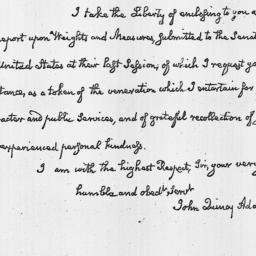 I take the Liberty of enclosing to you a
eport upon Weights and Measures, submitted to the Senat
United States at their last Session; of which I request yo
tance, as a token of the veneration which I entertain for
racter and public Services, and of grateful recollection of
experienced personal kindness.
I am with the highest Respect, Sir, your very
humble and obedt. Servt.
John Quincy Ada